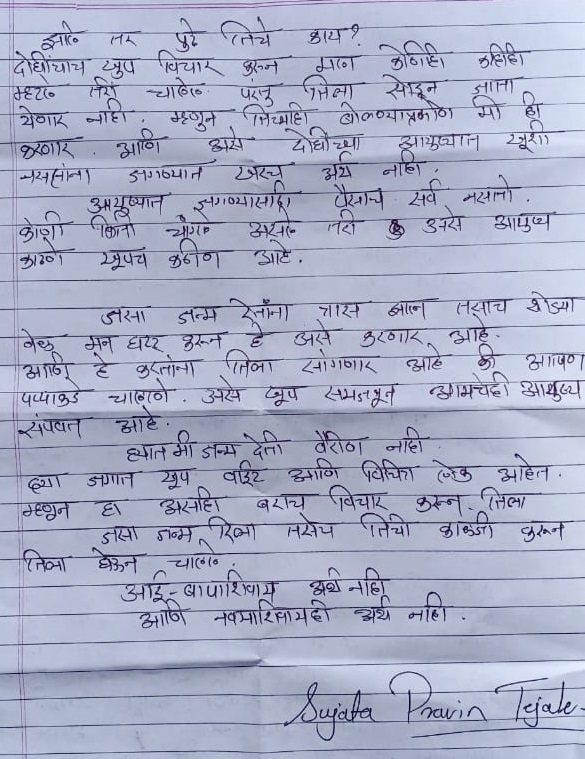 झाले तर पुढे तिचे काय?
दोघींचाच खुप विचार करुन मला कोणिही काहिही
म्हटल तरी चालेल. परंतु तिला सोडून जाता
येणार नाही. म्हणुन तिच्याही बोलण्याप्रमाणे मी ही
करणार. आणि असे दोघींच्या आयुष्यात खूशी
नसतांना जगण्यात खरच अर्थ नाही.
आयुष्यात जगण्यासाठी पैसाच सर्व नसतो.
कोणी किती चांगले असले तरी असे आयुष्य
काढणे खूपच कठीण आहे.
जसा जन्म देतांना त्रास झाला तसाच थोड्या
वेळ मन घट्ट करून हे असे करणार आहे.
आणि हे करतांना तिला सांगणार आहे की आपण
पप्पाकडे चाललो. असे खूप समजावून आमचेही आयुष्य
संपवत आहे.
ह्यात मी जन्म देती वैरीण नाही.
ह्या जगात खूप वाईट आणि विचित्र लोक आहेत.
म्हणून हा असाही बराच विचार करून तिला
जसा जन्म दिला तसेच तिची काळजी करून
तिला घेऊन चालले.
आई-बापाशिवाय अर्थ नाही
आणि नवऱ्याशिवायही अर्थ नाही.
Sujata Pravin Tejale